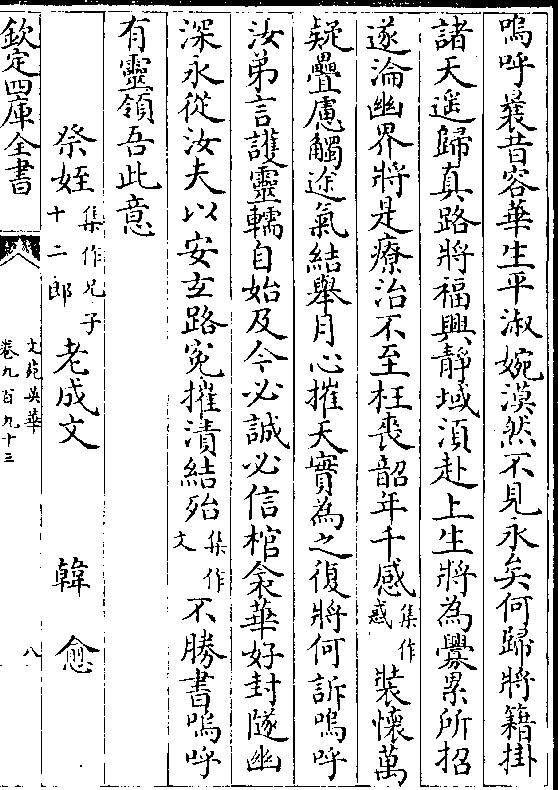 嗚呼曩昔容華生平淑婉漠然不見永矣何歸將籍掛
諸天遥歸真路將福興靜域湏赴上生將為釁累所招
遂淪幽界將是療治不至枉喪韶年千感集作惑裝懷萬
疑疊慮觸途氣結舉目心摧天實為之復將何訴嗚呼
汝弟言護靈轜自始及今必誠必信棺衾華好封隧幽
深永從汝夫以安玄路冤摧漬結殆集作文不勝書嗚呼
有靈領吾此意
祭姪集作兄子十二郎老成文 韓愈
欽定四庫全書 文苑英華卷九百九十三 八